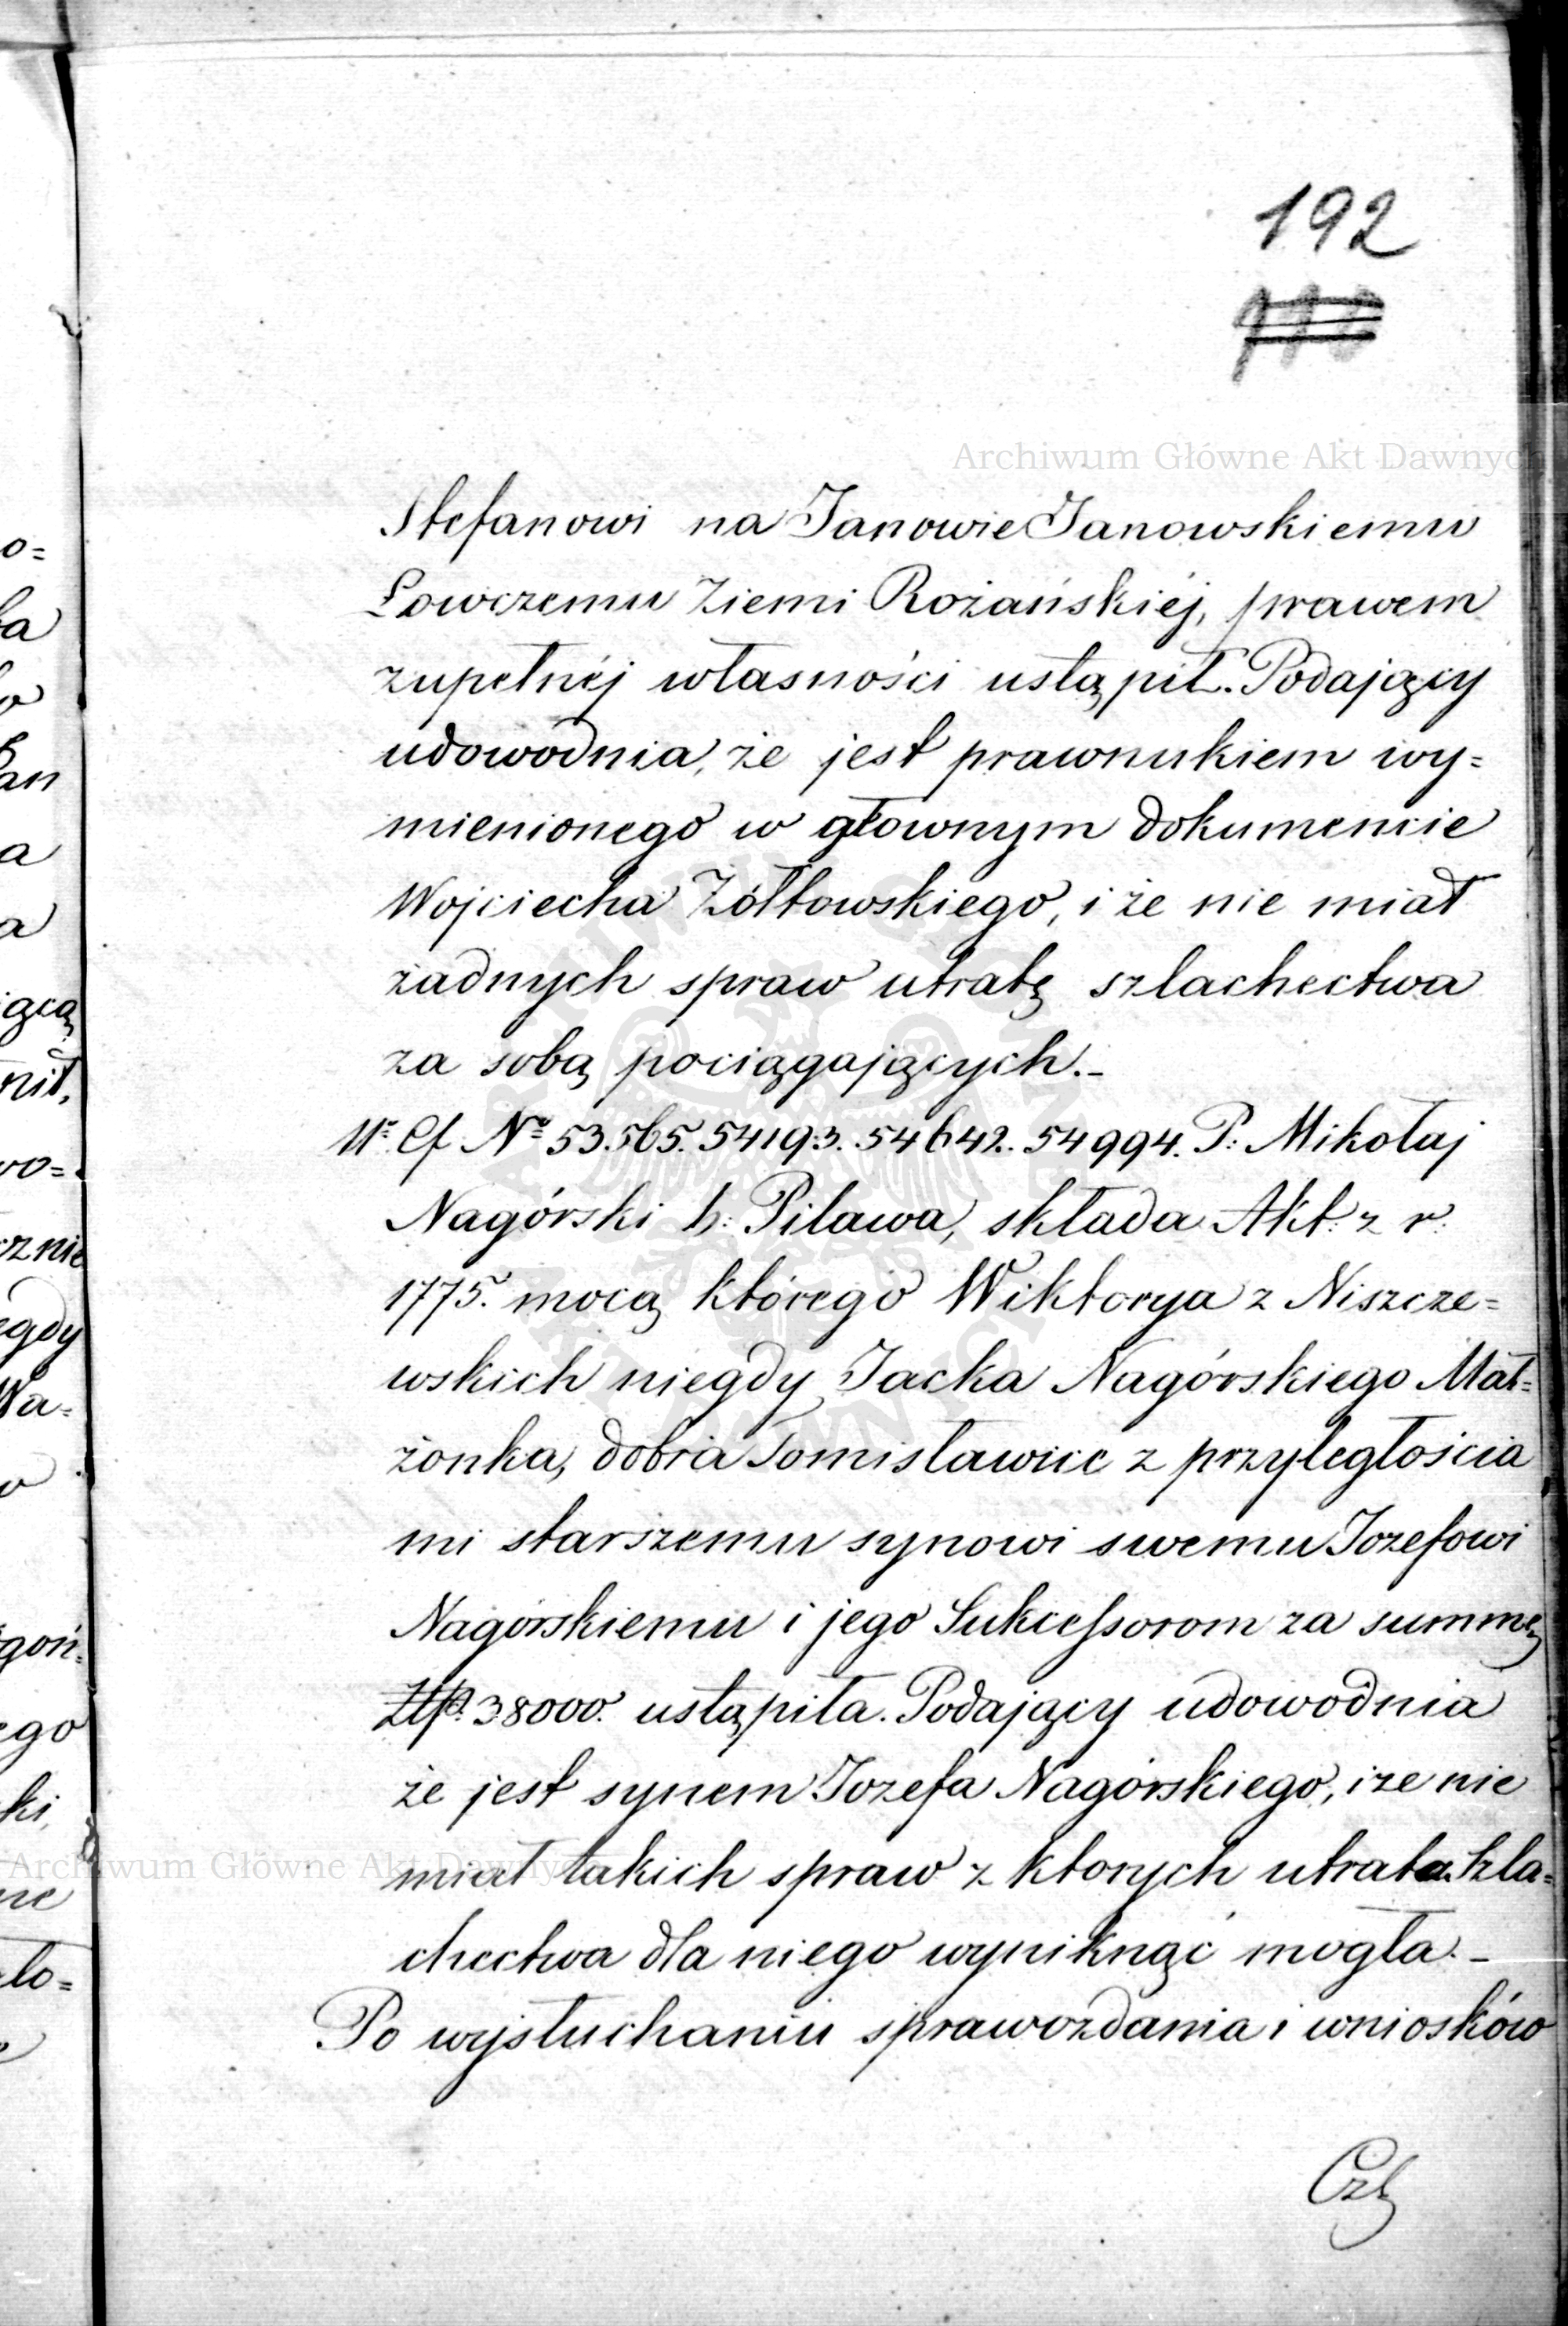 192
Archiwum Główne Akt Dawnych
Stefanowi na Janowie Janowskiemu
Łowczemu Ziemi Rożańskiéj, prawem
zupełnéj własności ustąpił. Podający
udowodnia, że jest prawnukiem wy=
mienionego w głownym dokumencie
Wojciecha Żółtowskiego, i że nie miał
żadnych spraw utratę szlachectwa
za sobą pociągających.-
No 53.565. 54193. 54642. 54994. P: Mikołaj
Nagórski h: Pilawa, składa Akt: z r.
1775. mocą którego Wiktorya z Niszcze=
wskich niegdy Jacka Nagórskiego Mał=
żonka, dobra Tomisławice z przyległościa
mi starszemu synowi swemu Jozefowi
Nagórskiemu i jego Sukcessorom za summę
Złp. 38000. ustąpiła. Podający udowodnia
że jest synem Jozefa Nagórskiego, i ze nie
Archiwum Główne Akt Dawnych
miał takich spraw z ktorych utrata szla=
chectwa dla niego wyniknąć mogła.-
Po wysłuchaniu sprawozdania i wniosków
Czł
o=
ba
an
a
a
ącą
nił,
wo=
cznie
egdy
Wa=
goń=
ego
ki,
ne
ło=